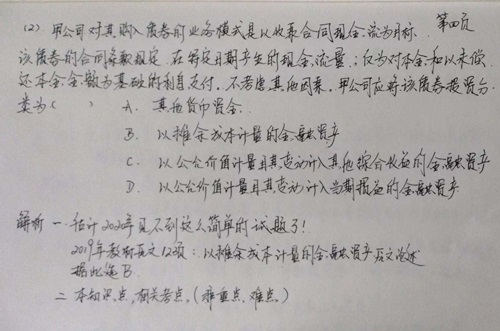 (2) 甲公司对其购入债券的业务模式是以收取合同现金流为目标. 第四页
该债券的合同条款规定,在特定日期产生的现金流量;仅为对本金和以未偿
还本金金额为基础的利息支付,不考虑其他因素,甲公司应将该债券投资分
类为( ) A. 其他货币资金.
B. 以摊余成本计量的金融资产
C. 以公允价值计量且其变动计入其他综合收益的金融资产
D. 以公允价值计量且其变动计入当期损益的金融资产
解析 一 估计2020年见不到这么简单的试题了!
2019年教材 12项:以摊余成本计量的金融资产 论述
据此选B.
二 本知识点,相关考点.(难重点,难点.)